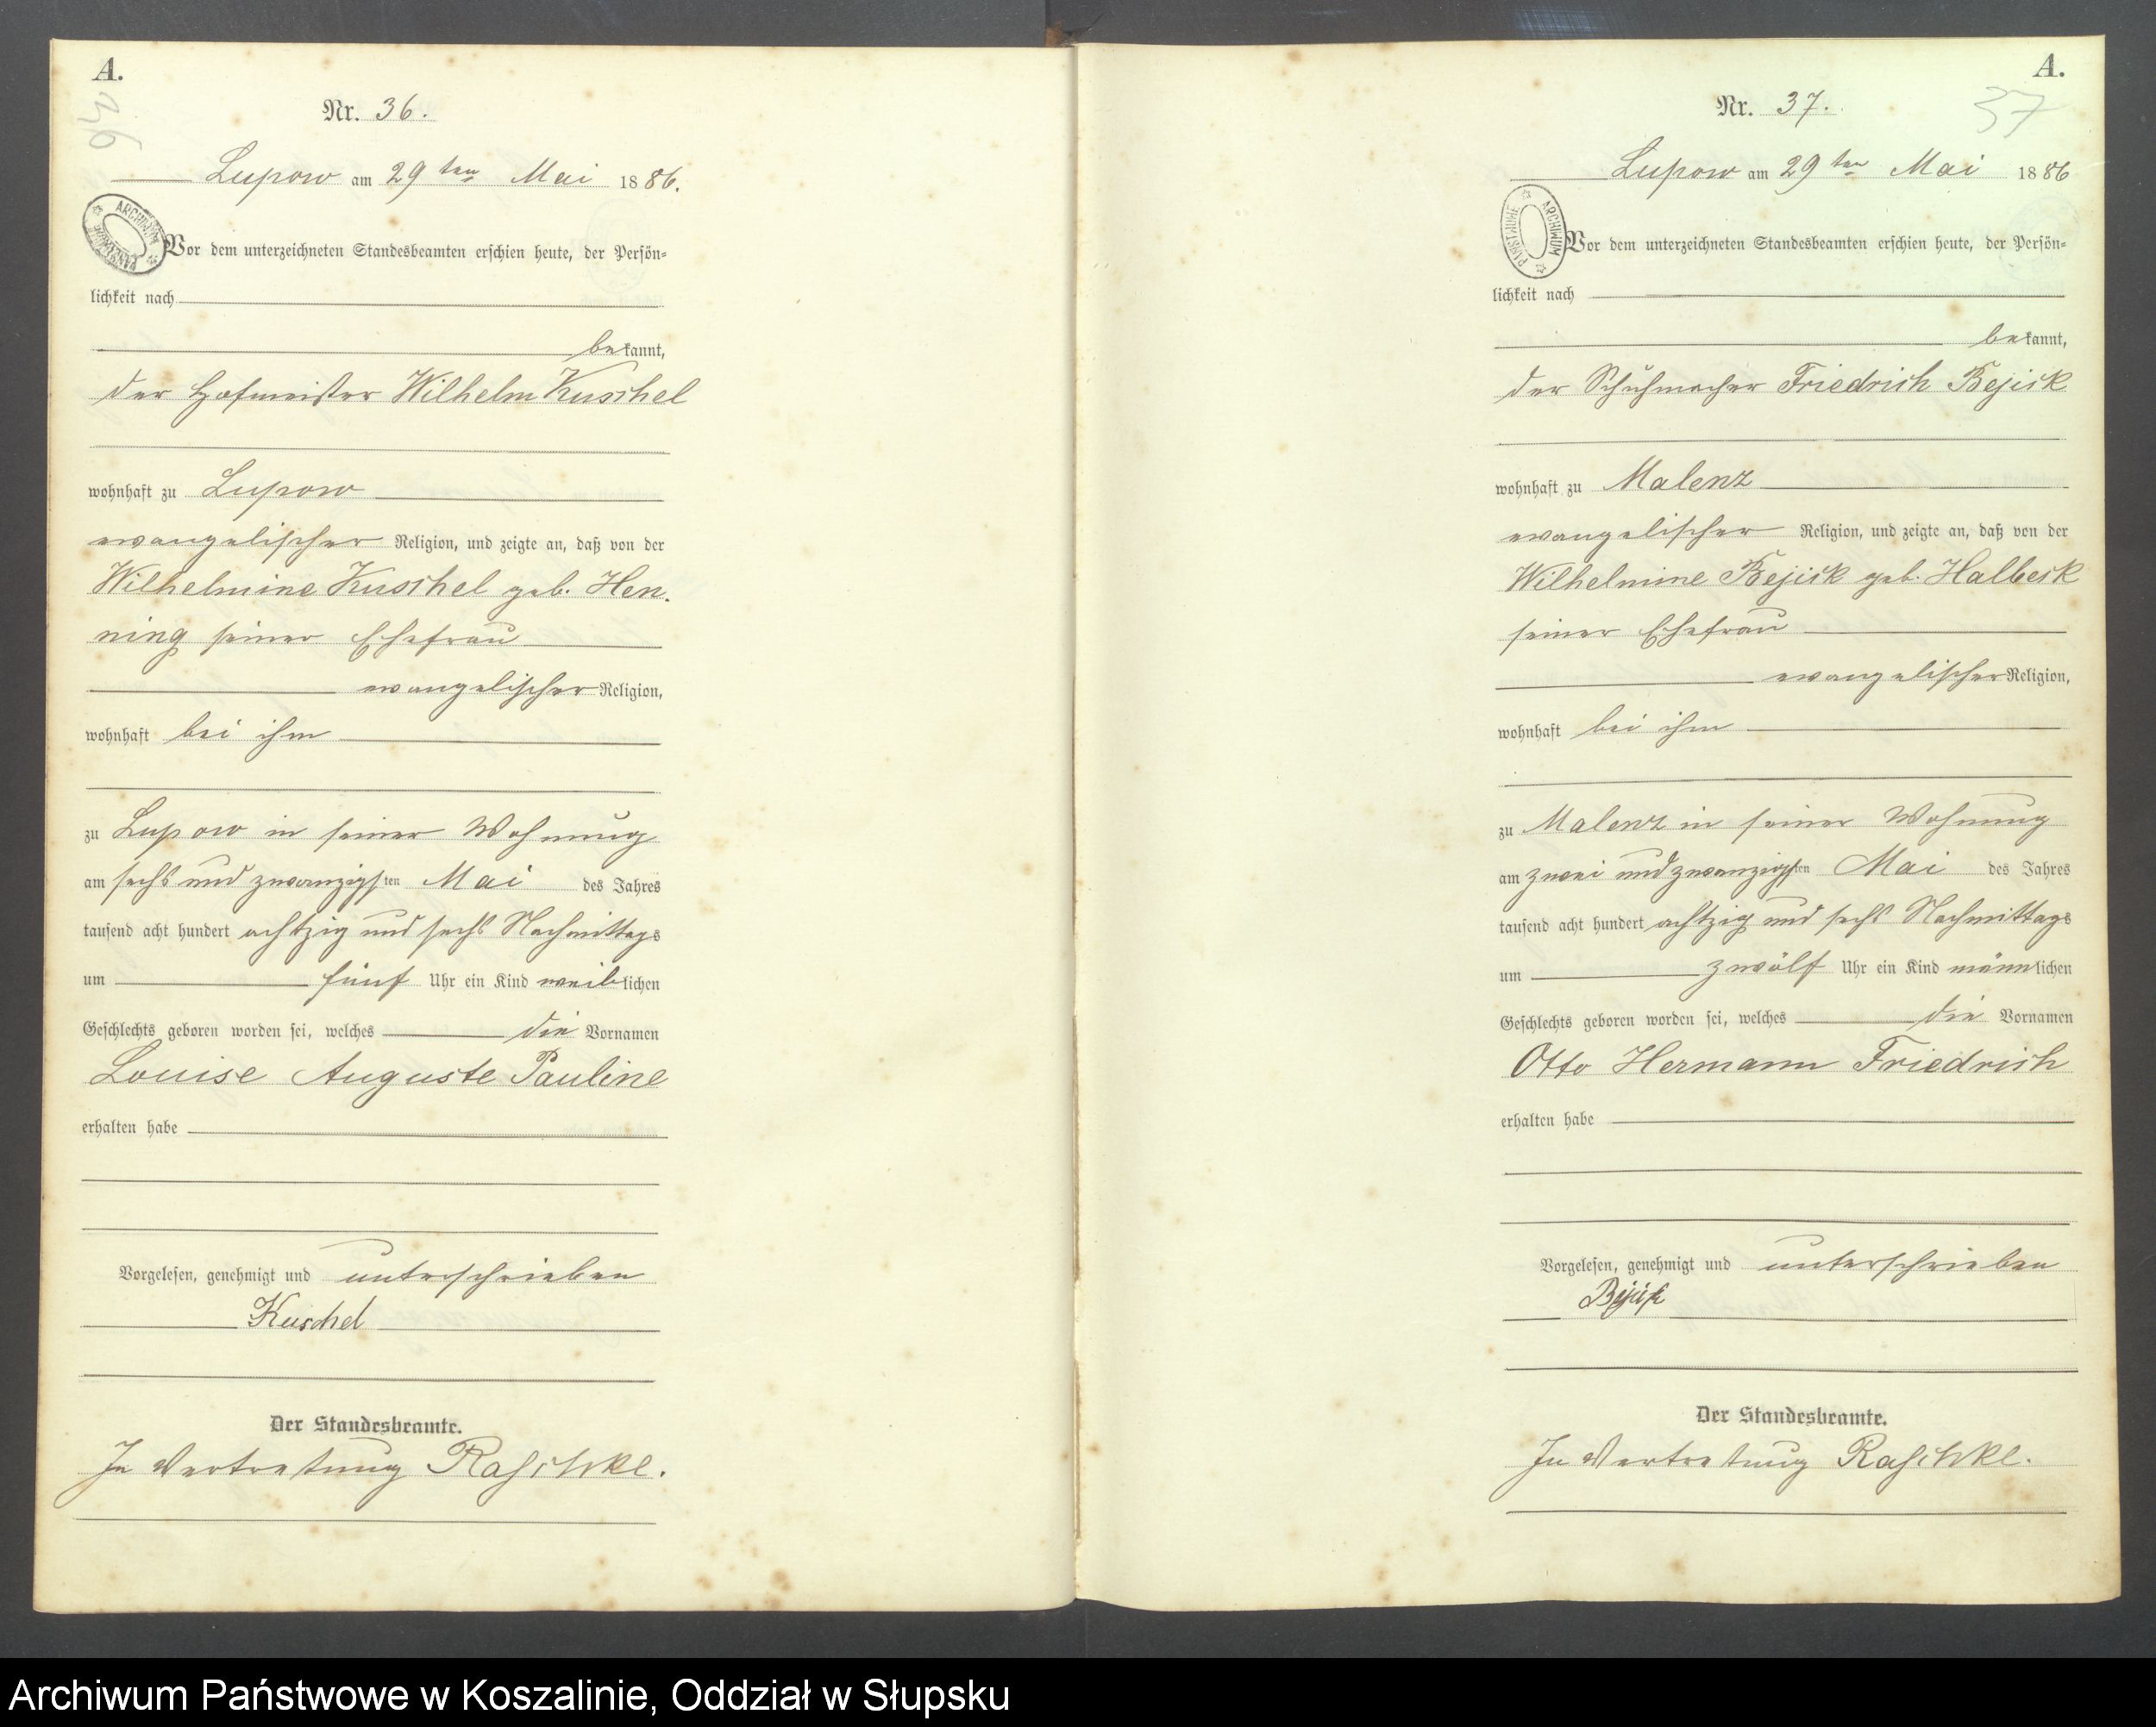 A.
36
Nr. 36.
Lupow am 29ten Mai 1886.
Vor dem unterzeichneten Standesbeamten erschien heute, der Persön=
lichkeit nach
bekannt,
der Hofmeister Wilhelm Kuschel
wohnhaft zu Lupow
evangelischer Religion, und zeigte an, daß von der
Wilhelmine Kuschel geb. Hen.
ning seiner Ehefrau
evangelischer Religion,
wohnhaft bei ihm
zu Lupow in seiner Wohnung
am sechs und zwanzigsten Mai des Jahres
tausend acht hundert achtzig und sechs Nachmittags
um fünf Uhr ein Kind weiblichen
Geschlechts geboren worden sei, welches die Vornamen
Louise Auguste Pauline
erhalten habe
Vorgelesen, genehmigt und unterschrieben
Kuschel
Der Standesbeamte.
In Vertretung Raschke.
A.
37
Nr. 37.
Lupow am 29ten Mai 1886
Vor dem unterzeichneten Standesbeamten erschien heute, der Persön=
lichkeit nach
bekannt,
der Schuhmacher Friedrich Bejick
wohnhaft zu Malenz
evangelischer Religion, und zeigte an, daß von der
Wilhelmine Bejick geb. Halbeck
seiner Ehefrau
evangelischer Religion,
wohnhaft bei ihm
zu Malenz in seiner Wohnung
am zwei und zwanzigsten Mai des Jahres
tausend acht hundert achtzig und sechs Nachmittags
um zwölf Uhr ein Kind männlichen
Geschlechts geboren worden sei, welches die Vornamen
Otto Hermann Friedrich
erhalten habe
Vorgelesen, genehmigt und unterschrieben
Bejick
Der Standesbeamte.
In Vertretung Raschke.
ARCHIWUM PAŃSTWOWE
Archiwum Państwowe w Koszalinie, Oddział w Słupsku